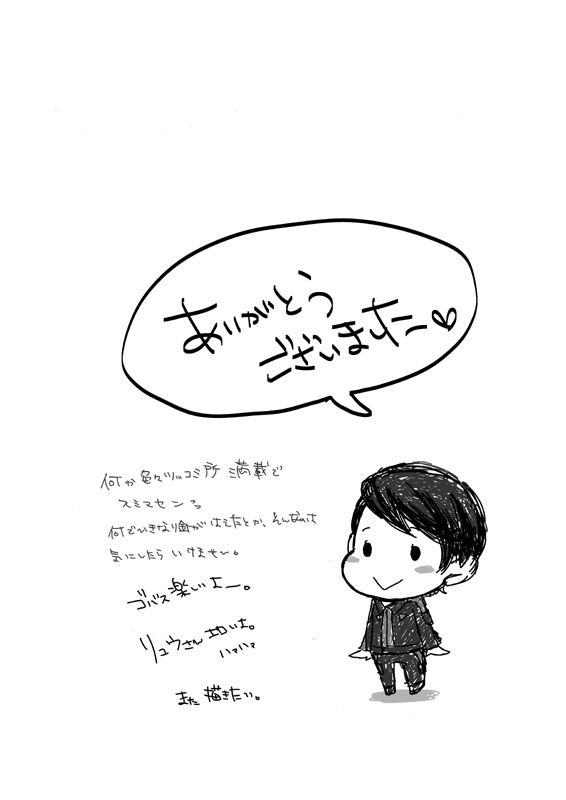 ありがとう
ございました♡
何か色々ツッコミ所満載で
スミマセンでした
何でいきなり歯がはえたとか、そんなのは
気にしたらいけません。
ゴバス楽しいよー。
リュウさん
ハァハァ
また描きたい。